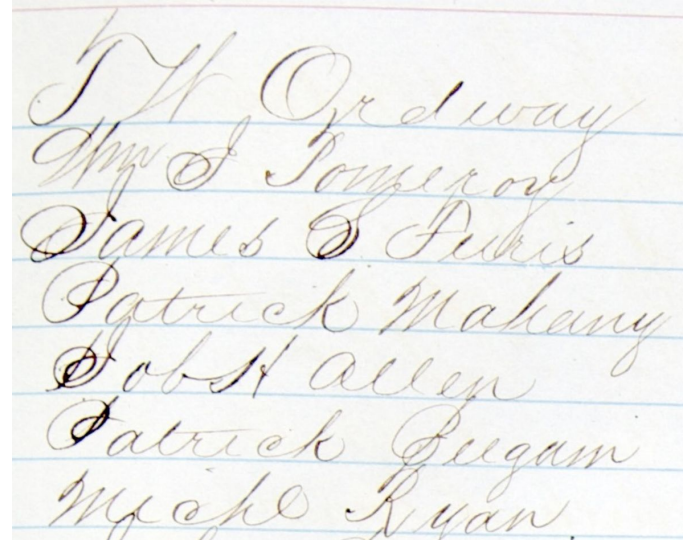 T W Ordway
Wm J Pomeroy
James S
Patrick Mahany
Job H Allen
Patrick
Michl Ryan